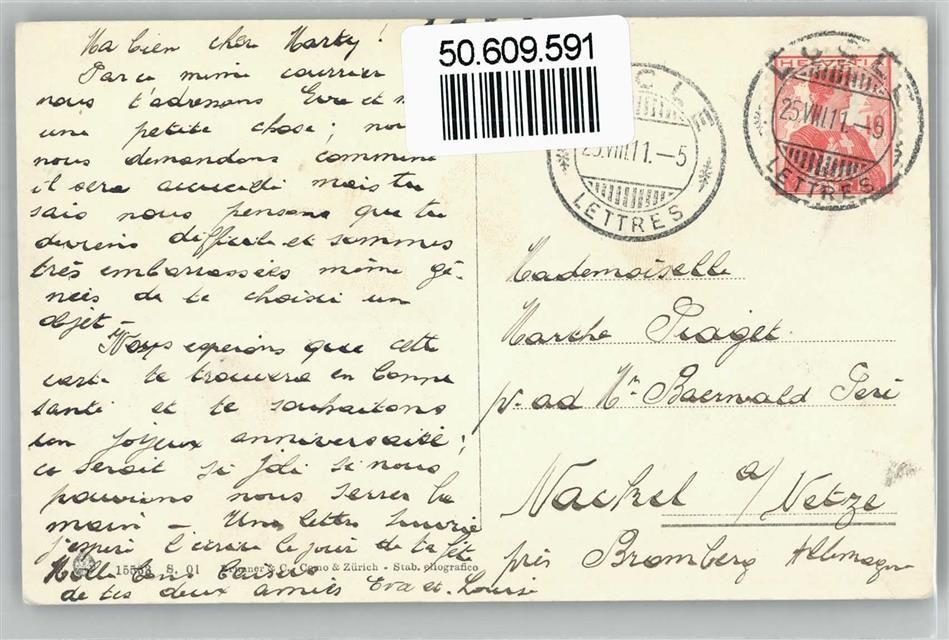 Ma bien cher Marty!
Par ce même courrier
nous t'adressons Eva et
une petite chose; nous
nous demandons comment
il sera accueilli mais tu
sais nous pensons que tu
deviens difficile et sommes
très embarrassées même gê-
nées de te choisir un
objet -
Nous espérons que cette
carte te trouvera en bonne
santé et te souhaitons
un joijeux anniversaire;
ce serait si joli si nous
pouvions nous serrer la
main - Une lettre suivra
j'espère l'écrire le jour de ta fête
Mille bons baisers
de tes deux amies Eva et Louise
15568 S. 01 Brunner & C. Como & Zürich - Stab. eliografico
50.609.591
25.VIII.11.-5
LETTRES
LOCLE
HELVETIA
25.VIII.11.-9
LETTRES
Mademoiselle
Marthe Piaget
p. ad Mr Baerwald Jeri
Nackel a/ Netze
près Bromberg Allemagne